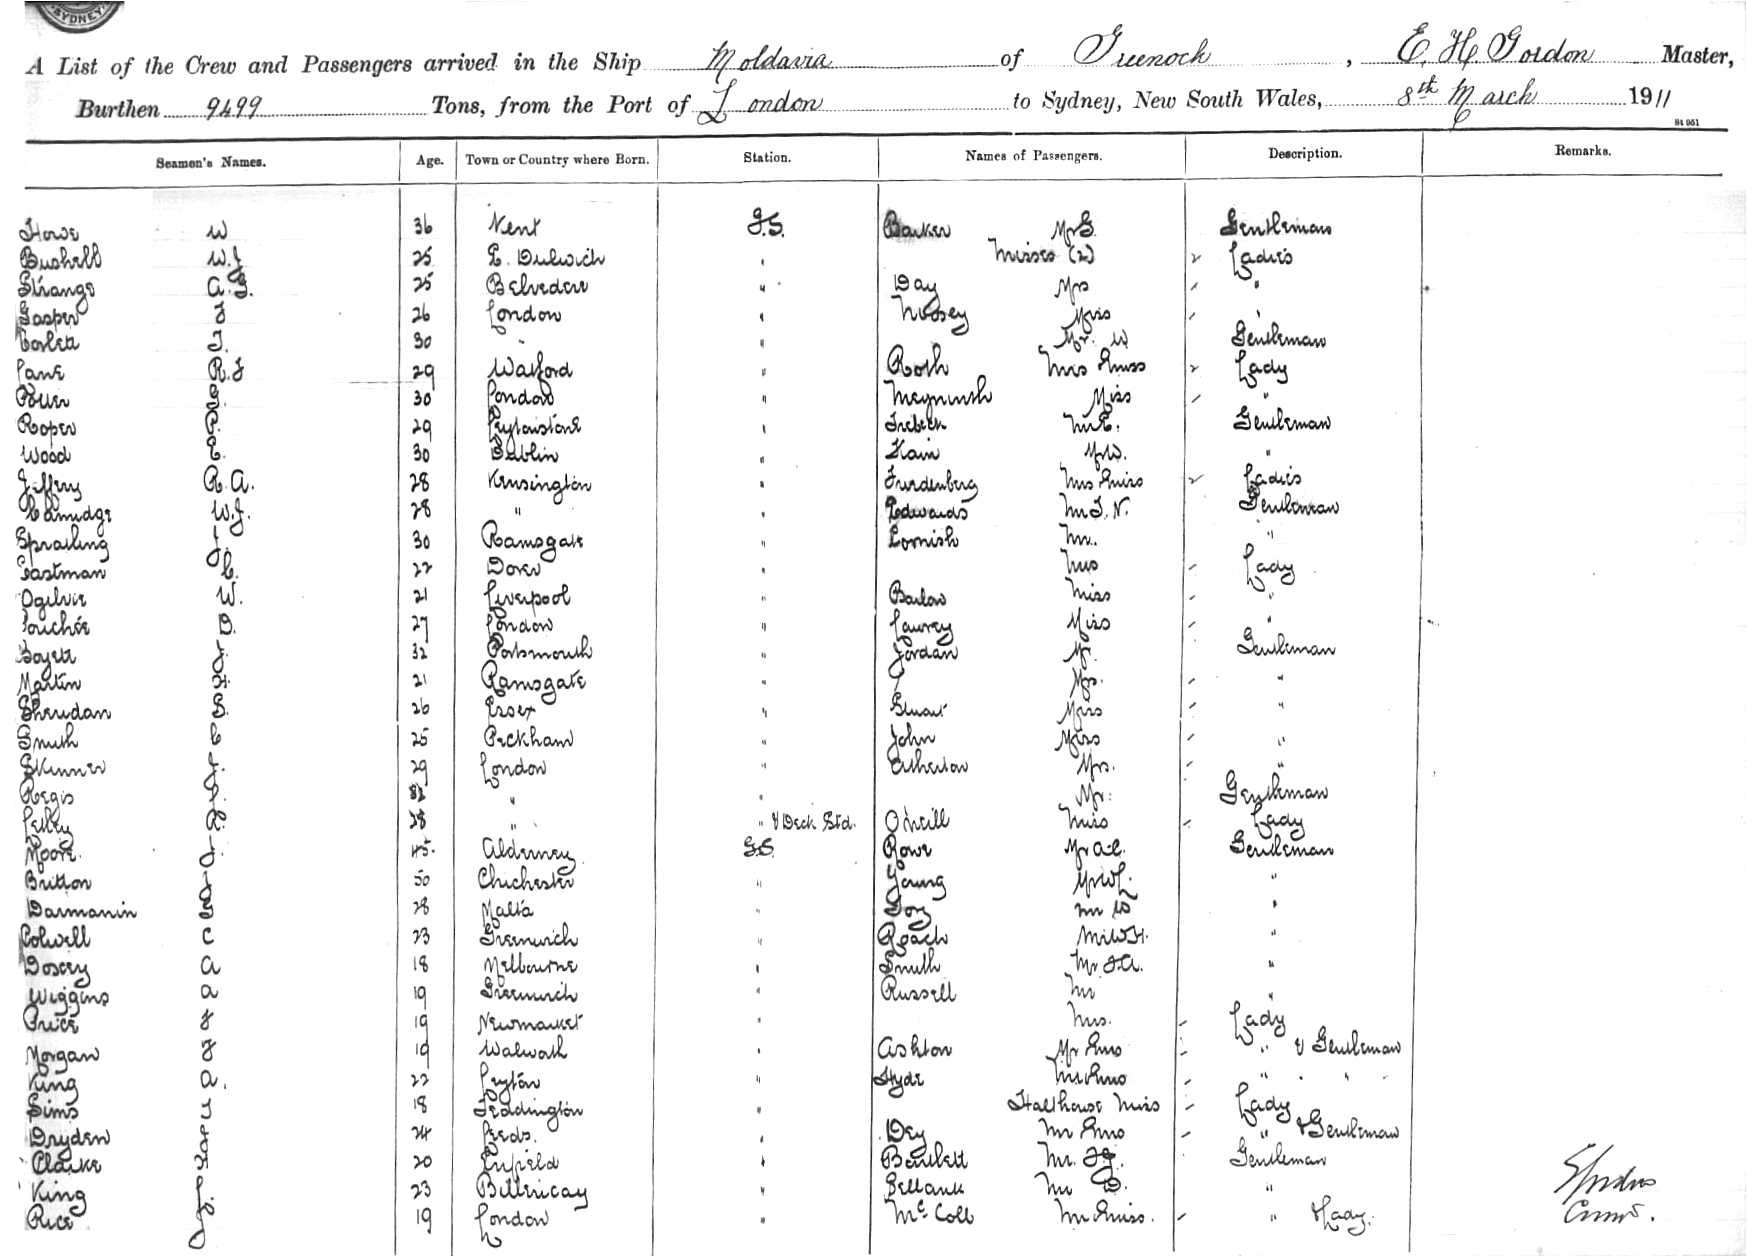 SYDNEY
A List of the Crew and Passengers arrived in the Ship Moldavia of Greenock, E. H. Gordon Master,
Burthen 9499 Tons, from the Port of London to Sydney, New South Wales, 8th March 1911
Seamen's Names. Age. Town or Country where Born. Station. Names of Passengers. Description. Remarks.
Howe W 36 Kent G.S. Barker Mr G. Gentleman
Bushell W.J 25 E. Dulwich " Misses (2) Ladies
Strange A.G. 25 Belvedere " Day Mrs "
Gasper J 26 London " Miss "
J. 30 " " Mr. W Gentleman
Lane R.J 29 Watford " Roth Mrs & Miss Lady
30 London " Miss "
Roper 29 Leytonstone " Gentleman
Wood E. 30 Dublin " Kain "
Jeffery R.A. 28 Kensington " Mrs & Miss Ladies
W.J. 28 " " Edwards Gentleman
Sprailing J. 30 Ramsgate " Cornish Mr. "
Eastman C. 22 Dover " Mrs Lady
Ogilvie W. 21 Liverpool " Barlow Miss "
Touchée D. 27 London " Lawrey Miss "
32 Portsmouth " Jordan Mr. Gentleman
Martin 21 Ramsgate " Mrs. "
Sheridan S. 26 Essex " Stuart Miss "
Smith C 25 Peckham " John Miss "
Skinner 29 London " Etherton Mrs. "
Regis " " Mr. Gentleman
Pelley 28 " " & Deck Std. O'Neill Miss Lady
Moore J. 45 Alderney G.S. Rowe Mr A.C. Gentleman
Britton 50 Chichester " Young "
Darmanin 28 Malta " Foy Mr "
Colwell C 23 Greenwich " Roach Mr W.H. "
Doscey A 18 Melbourne " Smith Mr J.A. "
Wiggins A 19 Greenwich " Russell Mr "
Price J 19 Newmarket " Mrs. Lady
Morgan J 19 Walworth " Ashton Mr & Mrs " & Gentleman
King A. 22 Leyton " Hyde Mr & Mrs " " "
Sims 18 Teddington " Halthouse Miss Lady
Dryden 24 Leeds. " Dey Mr & Mrs " & Gentleman
Clarke 20 Enfield " Bartlett Mr. Gentleman
King 23 Billericay " Mr D. "
Rice J. 19 London " McColl Mr & Miss. " & Lady.